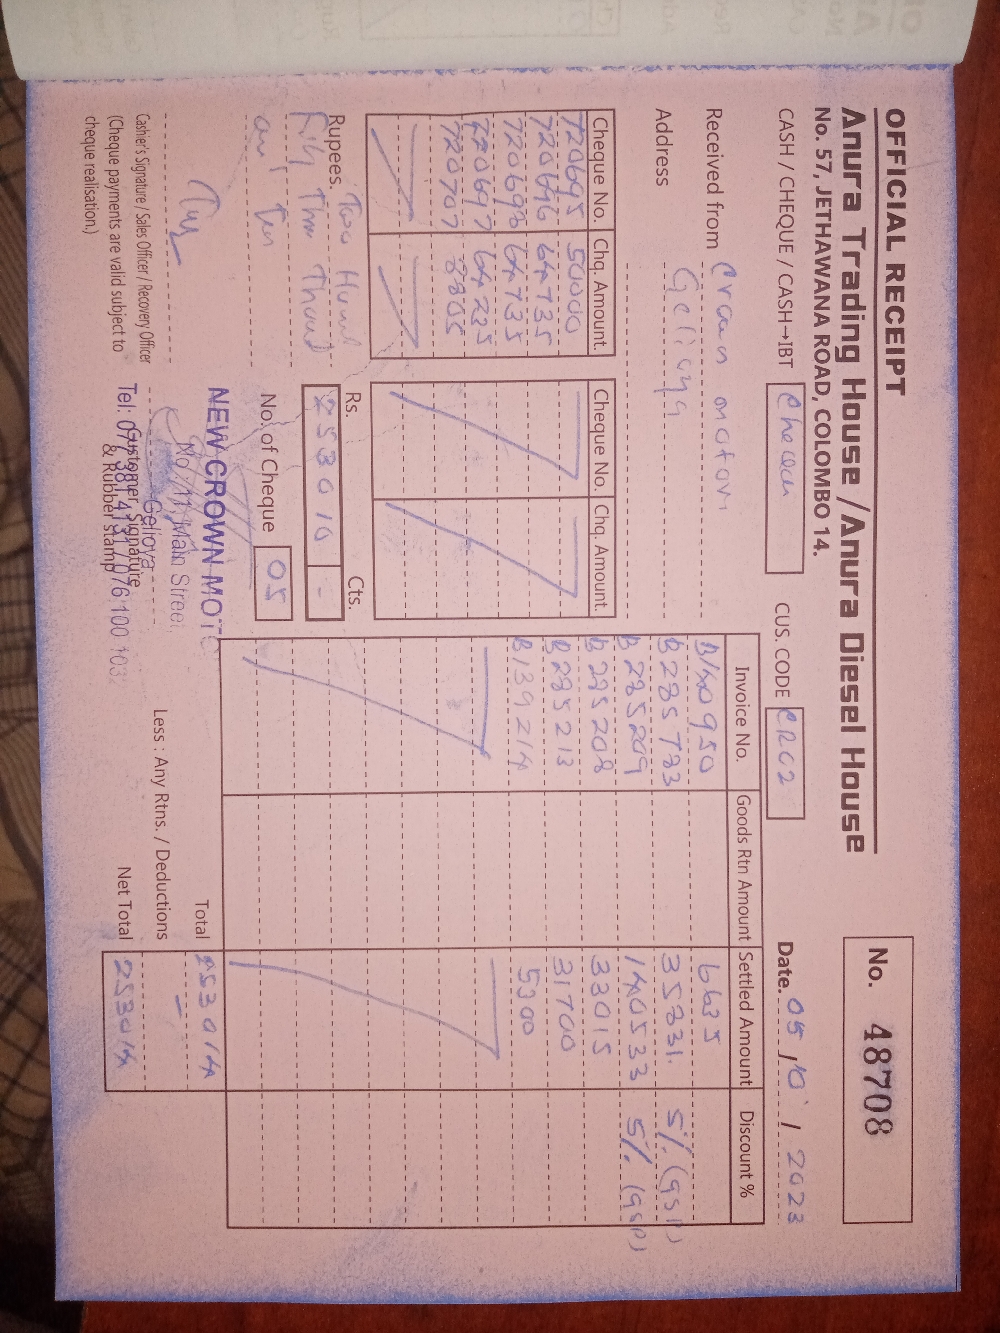 OFFICIAL RECEIPT
Anura Trading House / Anura Diesel House
No. 57, JETHAWANA ROAD, COLOMBO 14.
No. 48708
CASH / CHEQUE / CASH→IBT
CUS. CODE CR02
Date. 05 / 10 / 2023
Received from Crown motors
Address Gelioya
Cheque No. Chq. Amount.
720695 50000
720696 64735
720698 64735
720697 64235
720707 8805
Cheque No. Chq. Amount.
Invoice No. Goods Rtn Amount Settled Amount Discount %
B140950 6635
B285783 35831 5% (GSP)
B285209 140533 5% (GSP)
B285208 33015
B285213 31700
B139214 5300
Rupees. Two
and Ten
Rs. Cts.
253010 -
No. of Cheque 05
Total 253014
Less : Any Rtns. / Deductions -
Net Total 253014
Cashier's Signature / Sales Officer / Recovery Officer
(Cheque payments are valid subject to
cheque realisation.)
NEW CROWN MOTO
No: 11, Main Street,
Gelioya.
Customer Signature
& Rubber Stamp